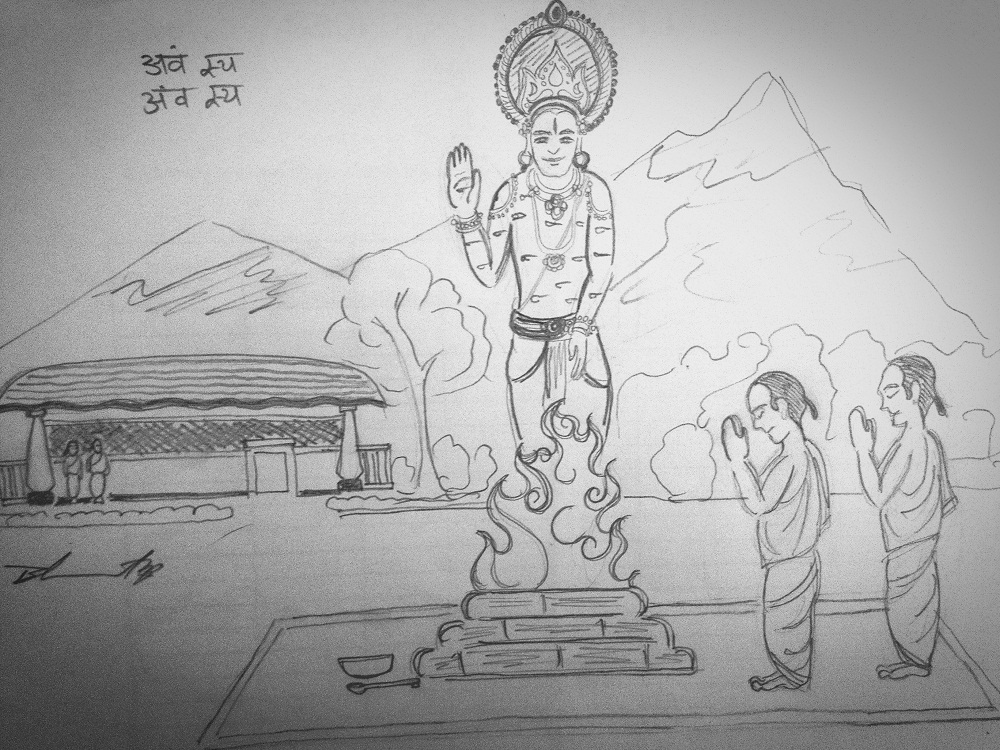 अंव स्य
अंव स्य